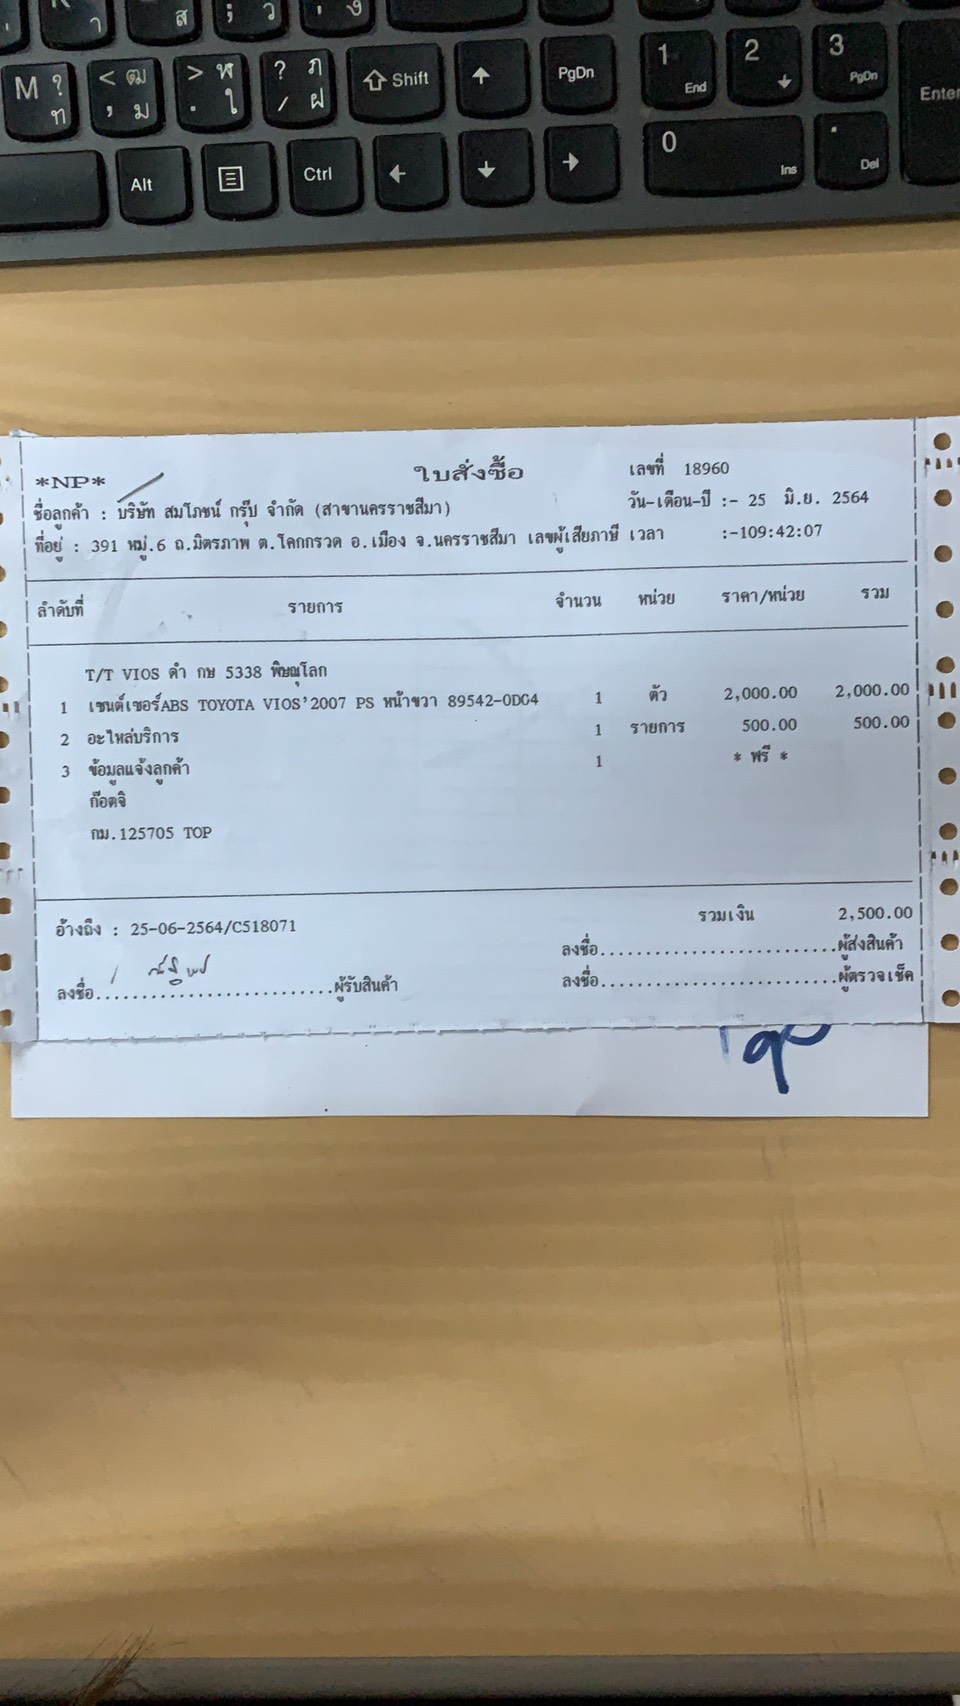 M ? ท
< ฒ , ม
> ฬ . ใ
? ฦ / ฝ
Shift
PgDn
1 End
2
3 PgDn
Enter
Alt
Ctrl
0 Ins
. Del
*NP*
ใบสั่งซื้อ
เลขที่ 18960
ชื่อลูกค้า : บริษัท สมโภชน์ กรุ๊ป จำกัด (สาขานครราชสีมา)
วัน-เดือน-ปี :- 25 มิ.ย. 2564
ที่อยู่ : 391 หมู่.6 ถ.มิตรภาพ ต.โคกกรวด อ.เมือง จ.นครราชสีมา เลขผู้เสียภาษี เวลา :-109:42:07
ลำดับที่ รายการ จำนวน หน่วย ราคา/หน่วย รวม
T/T VIOS ดำ กษ 5338 พิษณุโลก
1 เซนต์เซอร์ABS TOYOTA VIOS'2007 PS หน้าขวา 89542-0DG4 1 ตัว 2,000.00 2,000.00
2 อะไหล่บริการ 1 รายการ 500.00 500.00
3 ข้อมูลแจ้งลูกค้า 1 * ฟรี *
ก๊อตจิ
กม.125705 TOP
อ้างถึง : 25-06-2564/C518071
รวมเงิน 2,500.00
ลงชื่อ..............................ผู้ส่งสินค้า
ลงชื่อ..............................ผู้รับสินค้า
ลงชื่อ..............................ผู้ตรวจเช็ค